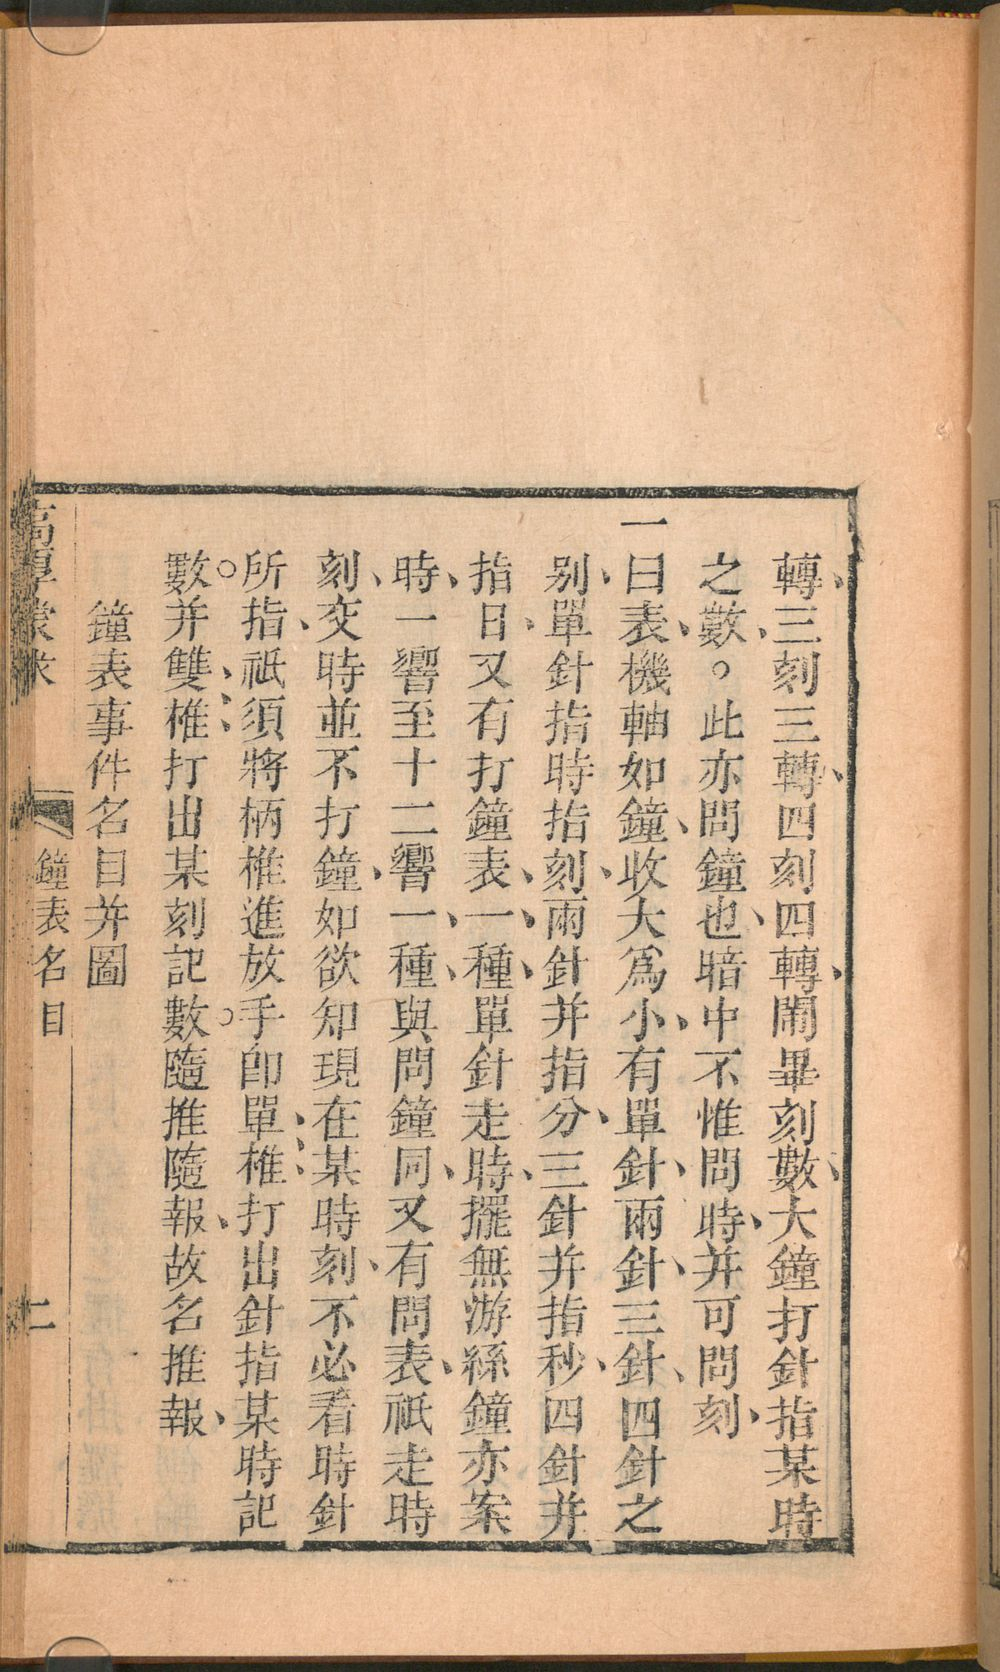 轉、三刻三轉、四刻四轉、鬧畢刻數、大鐘打針指某時
之數、。此亦問鐘也、暗中不惟問時、并可問刻、
一曰表、機軸如鐘、收大爲小、有單針、兩針、三針、四針之
别、單針指時指刻、兩針并指分、三針并指秒、四針并
指日、又有打鐘表、一、種、單針走時、擺無游絲鐘亦案
時、一響至十二響一、種、與問鐘同、又有問表、祇走時
刻、交時並不打鐘、如欲知現在某時刻、不必看時針
所指、祇須將柄椎進放手卽單、椎、打出針指某時記
數。并雙、椎、打出某刻記數。隨推隨報、故名推報、
鐘表事件名目并圖
高厚蒙求
鐘表名目
二